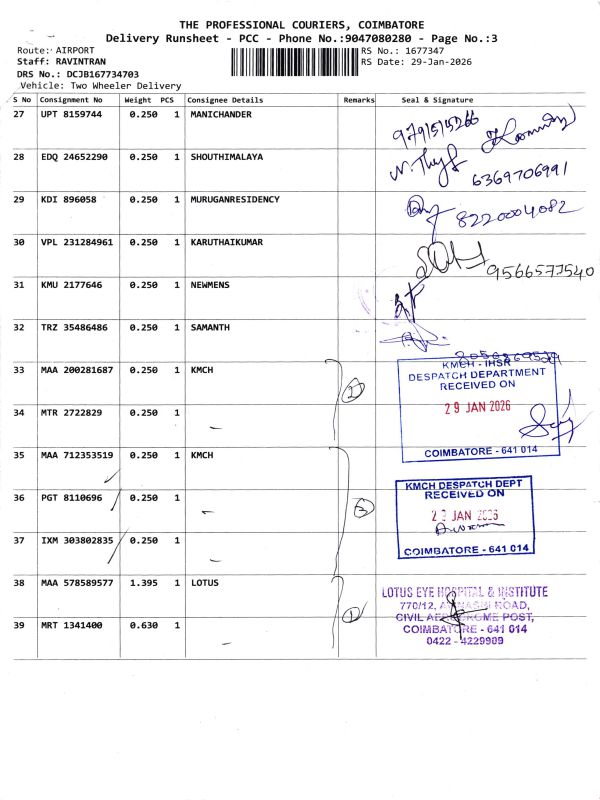 THE PROFESSIONAL COURIERS, COIMBATORE
Delivery Runsheet - PCC - Phone No.:9047080280 - Page No.:3
Route: AIRPORT
RS No.: 1677347
Staff: RAVINTRAN
RS Date: 29-Jan-2026
DRS No.: DCJB167734703
Vehicle: Two Wheeler Delivery
S No Consignment No Weight PCS Consignee Details Remarks Seal & Signature
27 UPT 8159744 0.250 1 MANICHANDER
9791515266
28 EDQ 24652290 0.250 1 SHOUTHIMALAYA
6369706991
29 KDI 896058 0.250 1 MURUGANRESIDENCY
8220004082
30 VPL 231284961 0.250 1 KARUTHAIKUMAR
9566577540
31 KMU 2177646 0.250 1 NEWMENS
32 TRZ 35486486 0.250 1 SAMANTH
33 MAA 200281687 0.250 1 KMCH
34 MTR 2722829 0.250 1
2
KMCH - IHSR
DESPATCH DEPARTMENT
RECEIVED ON
29 JAN 2026
COIMBATORE - 641 014
35 MAA 712353519 0.250 1 KMCH
36 PGT 8110696 0.250 1
37 IXM 303802835 0.250 1
3
KMCH DESPATCH DEPT
RECEIVED ON
29 JAN 2026
COIMBATORE - 641 014
38 MAA 578589577 1.395 1 LOTUS
39 MRT 1341400 0.630 1
1
LOTUS EYE HOSPITAL & INSTITUTE
770/12, AVINASHI ROAD,
CIVIL AERODROME POST,
COIMBATORE - 641 014
0422 - 4229999